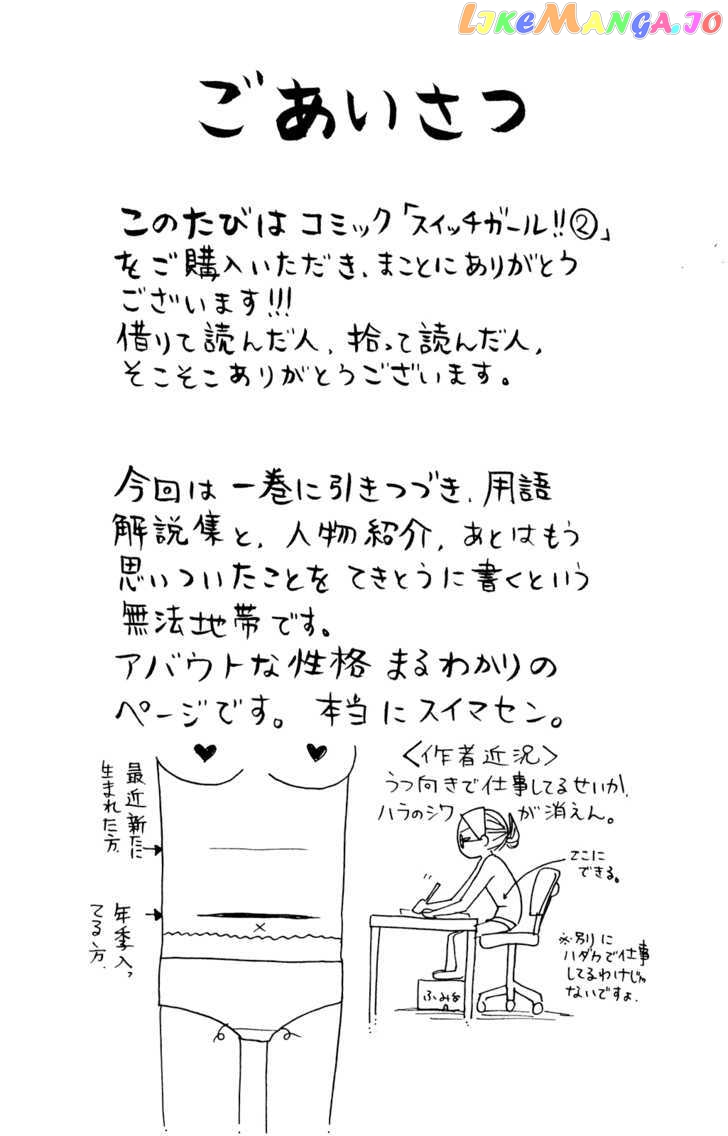 LIKEMANGA.IO
ごあいさつ
このたびは コミック「スイッチガール!!②」
をご購入いただき、まことにありがとう
ございます!!!
借りて読んだ人、拾って読んだ人、
そこそこありがとうございます。
今回は 一巻に引きつづき、用語
解説集と、人物紹介、あとはもう
思いついたことを てきとうに書くという
無法地帯です。
アバウトな性格 まるわかりの
ページです。 本当にスイマセン。
最近新たに
生まれた方。
年季入っ
てる方。
〈作者近況〉
うつ向きで仕事してるせいか、
ハラのシワ が消えん。
てこに
できる。
※別に
ハダカで仕事
してるわけじゃ
ないですよ。
ふみ台